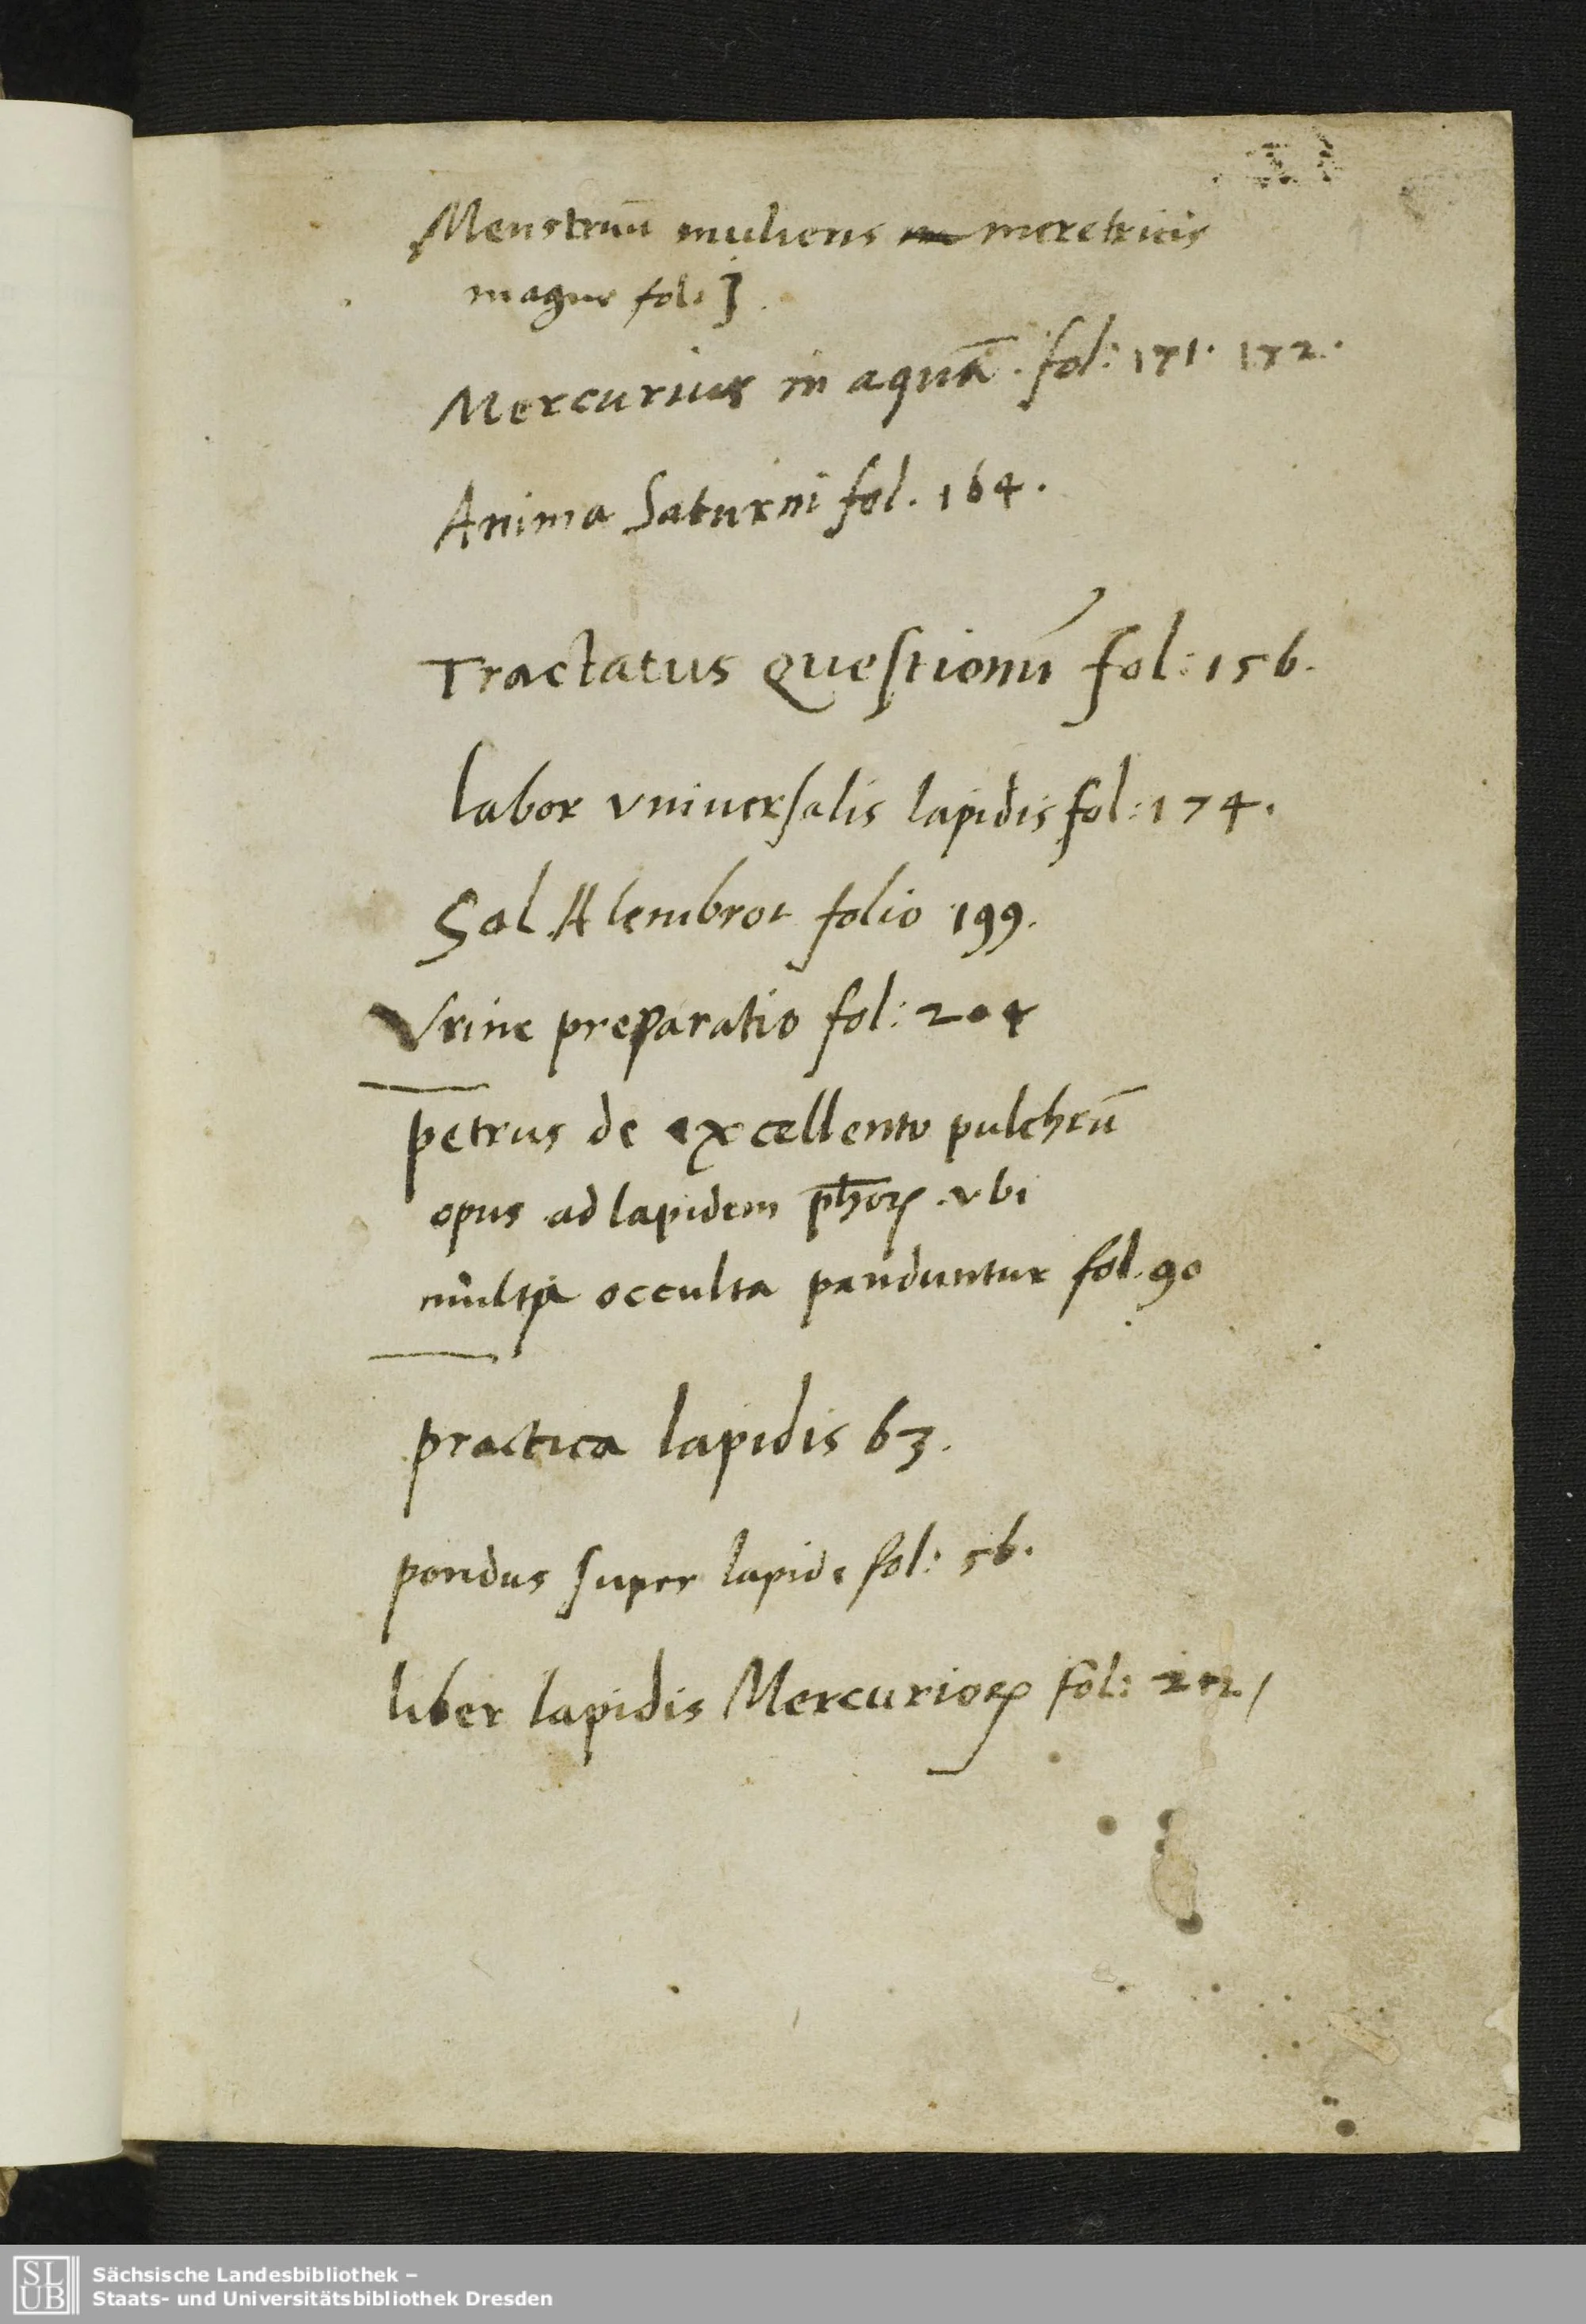 Menstruū mulieris meretricis
magne fol:
Mercurius in aquā. fol: 171. 172.
Anima Saturni fol. 164.
Tractatus Questionū fol: 156.
labor vniuersalis lapidis fol: 174.
Sal Alembrot folio 199.
Vrine preparatio fol: 204
petrus de excellento pulchrū
opus ad lapidem ph̄oꝝ vbi
multa occulta panduntur fol. 90
practica lapidis 63.
pondus super lapide fol: 56.
liber lapidis Mercurioꝝ fol:
SLUB
Sächsische Landesbibliothek –
Staats- und Universitätsbibliothek Dresden